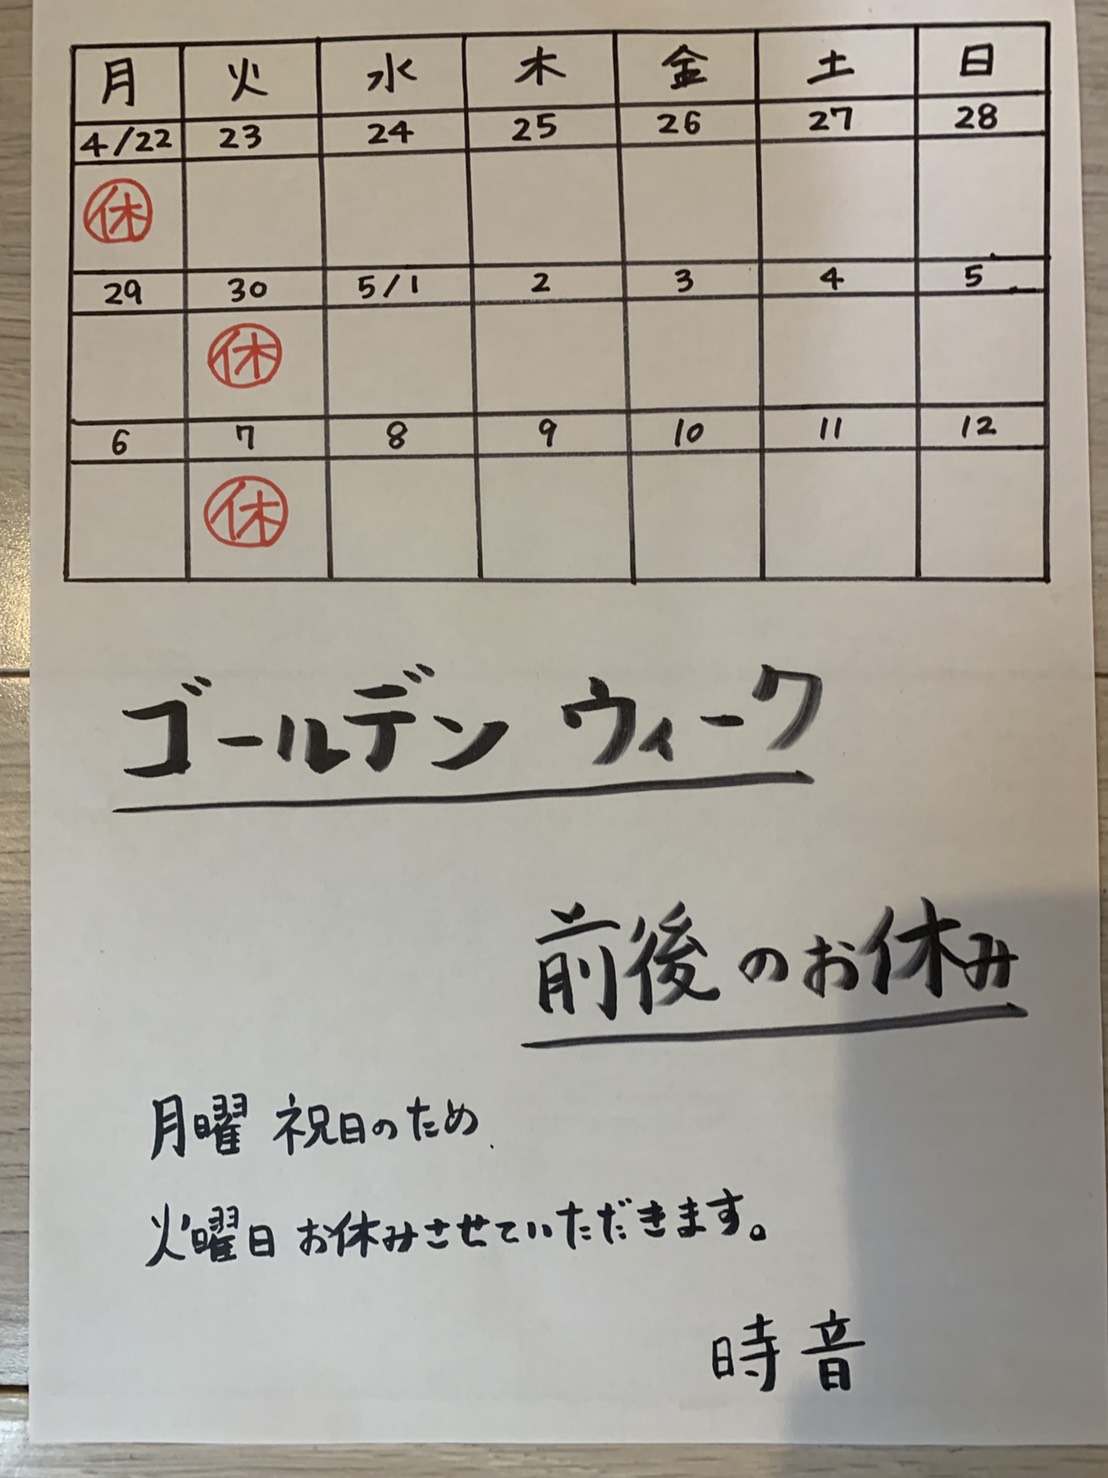 月 火 水 木 金 土 日
4/22 23 24 25 26 27 28
休
29 30 5/1 2 3 4 5
休
6 7 8 9 10 11 12
休
ゴールデン ウィーク
前後のお休み
月曜 祝日のため
火曜日 お休みさせていただきます。
時音